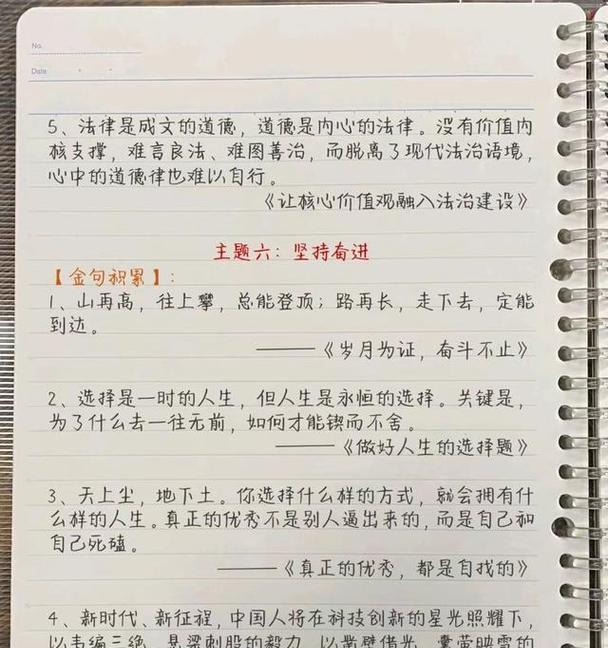 No.
Date
5、法律是成文的道德，道德是内心的法律。没有价值内
核支撑，难言良法、难图善治，而脱离了现代法治语境，
心中的道德律也难以自行。
《让核心价值观融入法治建设》
主题六：坚持奋进
【金句积累】：
1、山再高，往上攀，总能登顶；路再长，走下去，定能
到达。
——《岁月为证，奋斗不止》
2、选择是一时的人生，但人生是永恒的选择。关键是，
为了什么去一往无前，如何才能锲而不舍。
——《做好人生的选择题》
3、天上尘，地下土。你选择什么样的方式，就会拥有什
么样的人生。真正的优秀不是别人逼出来的，而是自己和
自己死磕。
——《真正的优秀，都是自找的》
4、新时代、新征程，中国人将在科技创新的星光照耀下，
以韦编三绝、悬梁刺股的毅力，以凿壁借光、囊萤映雪的